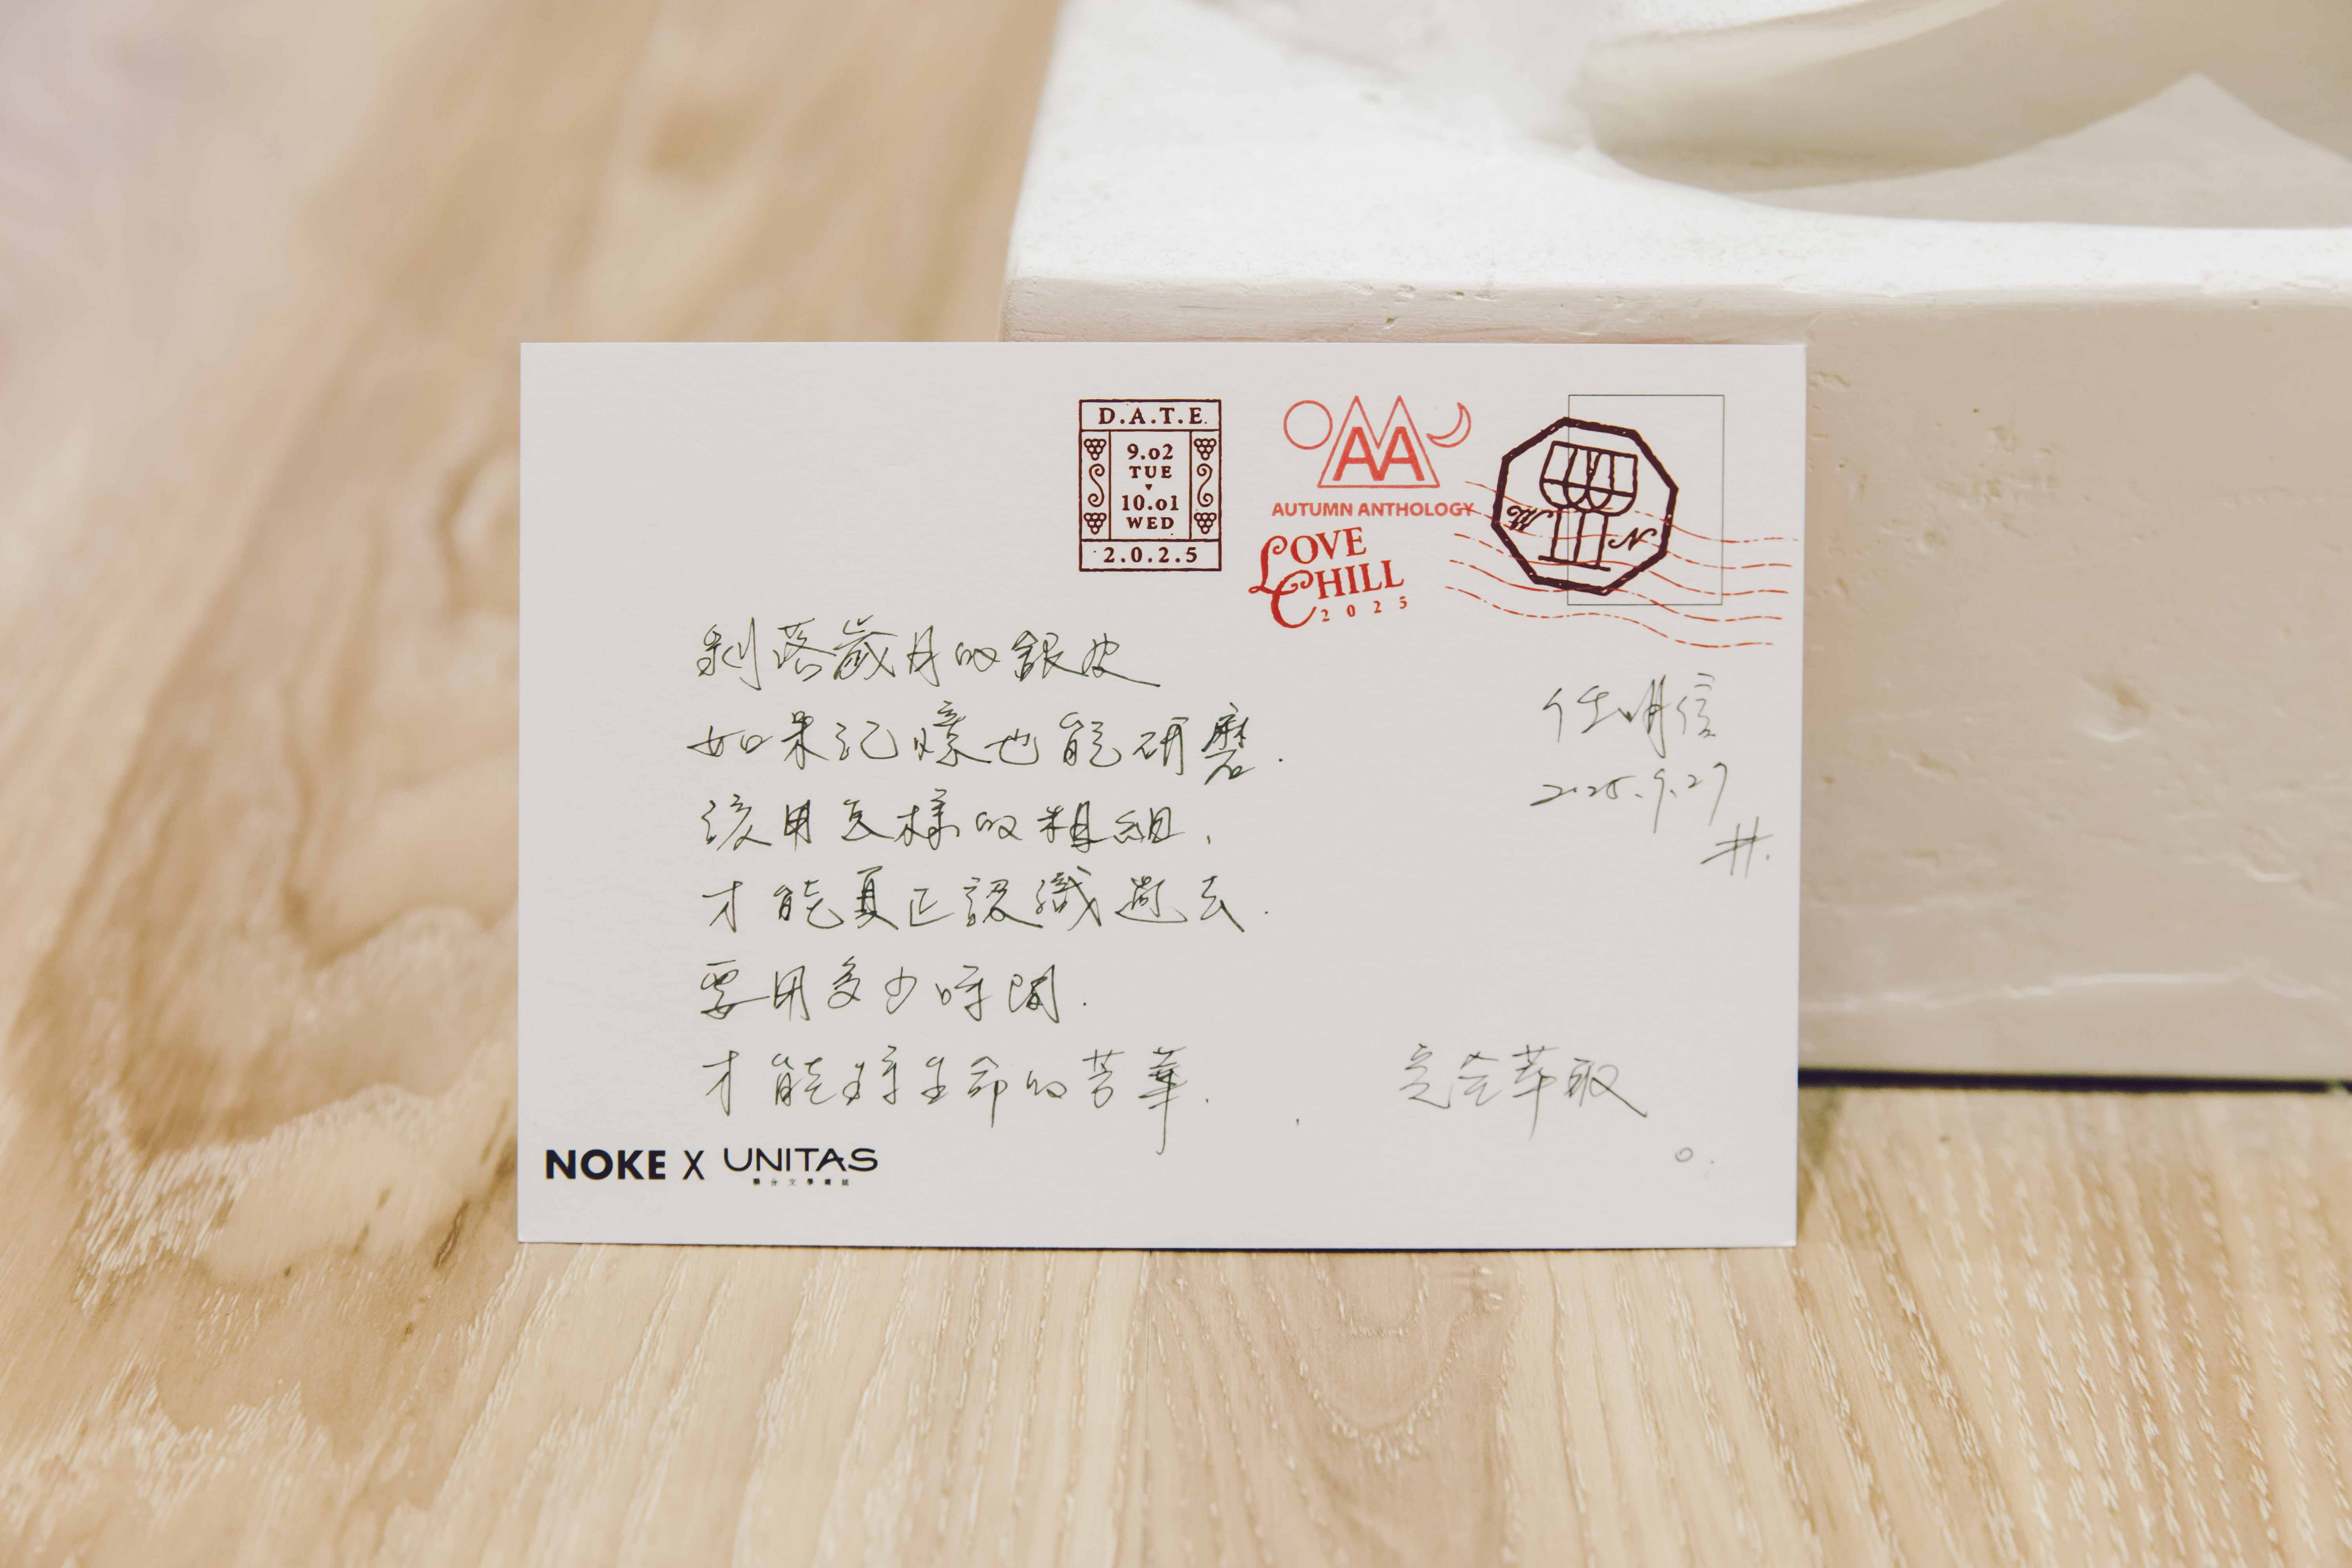 D.A.T.E.
9.02
TUE
10.01
WED
2.0.2.5
AA
AUTUMN ANTHOLOGY
LOVE
CHILL
2025
M N
剝落歲月的銀皮
如果記憶也能研磨.
該用怎樣的粗細、
才能真正認識過去.
要用多少時間.
才能將生命的芳華.
完全萃取
。
任明信
2025.9.27
井.
NOKE X UNITAS
聯合文學雜誌